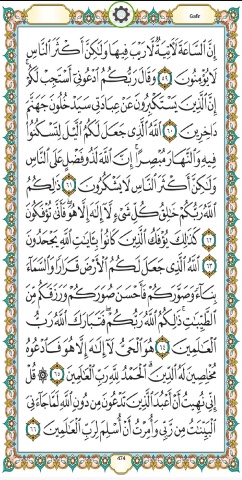 Gafir
إِنَّ ٱلسَّاعَةَ لَأٓتِيَةٌ لَّا رَيْبَ فِيهَا وَلَٰكِنَّ أَكْثَرَ ٱلنَّاسِ
لَا يُؤْمِنُونَ ٥٩ وَقَالَ رَبُّكُمُ ٱدْعُونِىٓ أَسْتَجِبْ لَكُمْ ۚ
إِنَّ ٱلَّذِينَ يَسْتَكْبِرُونَ عَنْ عِبَادَتِى سَيَدْخُلُونَ جَهَنَّمَ
دَاخِرِينَ ٦٠ ٱللَّهُ ٱلَّذِى جَعَلَ لَكُمُ ٱلَّيْلَ لِتَسْكُنُوا۟
فِيهِ وَٱلنَّهَارَ مُبْصِرًا ۚ إِنَّ ٱللَّهَ لَذُو فَضْلٍ عَلَى ٱلنَّاسِ
وَلَٰكِنَّ أَكْثَرَ ٱلنَّاسِ لَا يَشْكُرُونَ ٦١ ذَٰلِكُمُ
ٱللَّهُ رَبُّكُمْ خَٰلِقُ كُلِّ شَىْءٍ لَّآ إِلَٰهَ إِلَّا هُوَ ۖ فَأَنَّىٰ تُؤْفَكُونَ
٦٢ كَذَٰلِكَ يُؤْفَكُ ٱلَّذِينَ كَانُوا۟ بِـَٔايَٰتِ ٱللَّهِ يَجْحَدُونَ
٦٣ ٱللَّهُ ٱلَّذِى جَعَلَ لَكُمُ ٱلْأَرْضَ قَرَارًا وَٱلسَّمَآءَ
بِنَآءً وَصَوَّرَكُمْ فَأَحْسَنَ صُوَرَكُمْ وَرَزَقَكُم مِّنَ
ٱلطَّيِّبَٰتِ ۚ ذَٰلِكُمُ ٱللَّهُ رَبُّكُمْ ۖ فَتَبَارَكَ ٱللَّهُ رَبُّ
ٱلْعَٰلَمِينَ ٦٤ هُوَ ٱلْحَىُّ لَآ إِلَٰهَ إِلَّا هُوَ فَٱدْعُوهُ
مُخْلِصِينَ لَهُ ٱلدِّينَ ۗ ٱلْحَمْدُ لِلَّهِ رَبِّ ٱلْعَٰلَمِينَ ٦٥ ۞ قُلْ
إِنِّى نُهِيتُ أَنْ أَعْبُدَ ٱلَّذِينَ تَدْعُونَ مِن دُونِ ٱللَّهِ لَمَّا جَآءَنِىَ
ٱلْبَيِّنَٰتُ مِن رَّبِّى وَأُمِرْتُ أَنْ أُسْلِمَ لِرَبِّ ٱلْعَٰلَمِينَ ٦٦
474